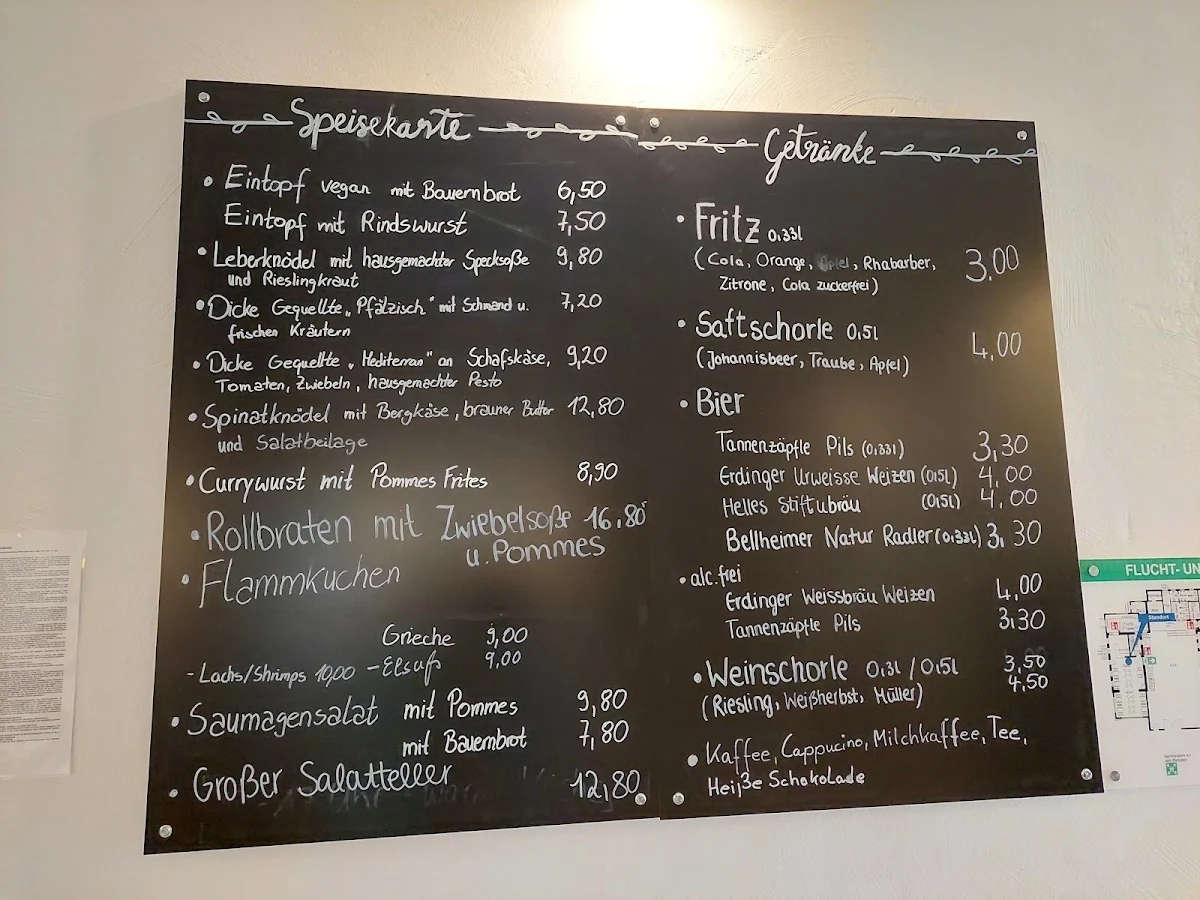 Speisekarte
• Eintopf vegan mit Bauernbrot 6,50
Eintopf mit Rindswurst 7,50
• Leberknödel mit hausgemachter Specksoße 9,80
und Rieslingkraut
• Dicke Gequellte „Pfälzisch" mit Schmand u. 7,20
frischen Kräutern
• Dicke Gequellte „Mediterran" an Schafskäse, 9,20
Tomaten, Zwiebeln, hausgemachter Pesto
• Spinatknödel mit Bergkäse, brauner Butter 12,80
und Salatbeilage
• Currywurst mit Pommes Frites 8,90
• Rollbraten mit Zwiebelsoße 16.80
u. Pommes
• Flammkuchen
Grieche 9,00
- Lachs/Shrimps 10,00 - Elsaß 9,00
• Saumagensalat mit Pommes 9,80
mit Bauernbrot 7,80
• Großer Salatteller 12,80
Getränke
• Fritz 0,33l
(Cola, Orange, Apfel, Rhabarber, 3,00
Zitrone, Cola zuckerfrei)
• Saftschorle 0,5l
(Johannisbeer, Traube, Apfel) 4,00
• Bier
Tannenzäpfle Pils (0,33l) 3,30
Erdinger Urweisse Weizen (0,5l) 4,00
Helles Stiftubräu (0,5l) 4,00
Bellheimer Natur Radler (0,33l) 3,30
• alc. frei
Erdinger Weissbräu Weizen 4,00
Tannenzäpfle Pils 3,30
• Weinschorle 0,3l / 0,5l 3,50
4,50
(Riesling, Weißherbst, Müller)
• Kaffee, Cappucino, Milchkaffee, Tee,
Heiße Schokolade
FLUCHT- UN
Standort